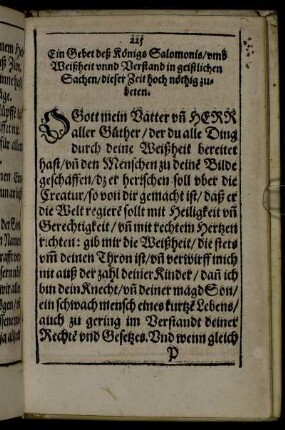 225
Ein Gebet deß Königs Salomonis/ vmb
Weißheit vnnd Verstand in geistlichen
Sachen/ dieser Zeit hoch nöthig zu-
beten.
O Gott mein Vätter vñ HERR
aller Güther/ der du alle Ding
durch deine Weißheit bereitet
hast/ vñ den Menschen zu deinē Bilde
geschaffen/ dz er herrschen soll vber die
Creatur/ so von dir gemacht ist/ daß er
die Welt regierē sollt mit Heiligkeit vñ
Gerechtigkeit/ vñ mit rechtem Hertzen
richten: gib mir die Weißheit/ die stets
vm̄ deinen Thron ist/ vñ verwirff mich
nit auß der zahl deiner Kinder/ dañ ich
bin dein Knecht/ vñ deiner magd Son/
ein schwach mensch eines kurtzē Lebens/
auch zu gering im Verstandt deiner
Rechtē vnd Gesetzes. Vnd wenn gleich
P